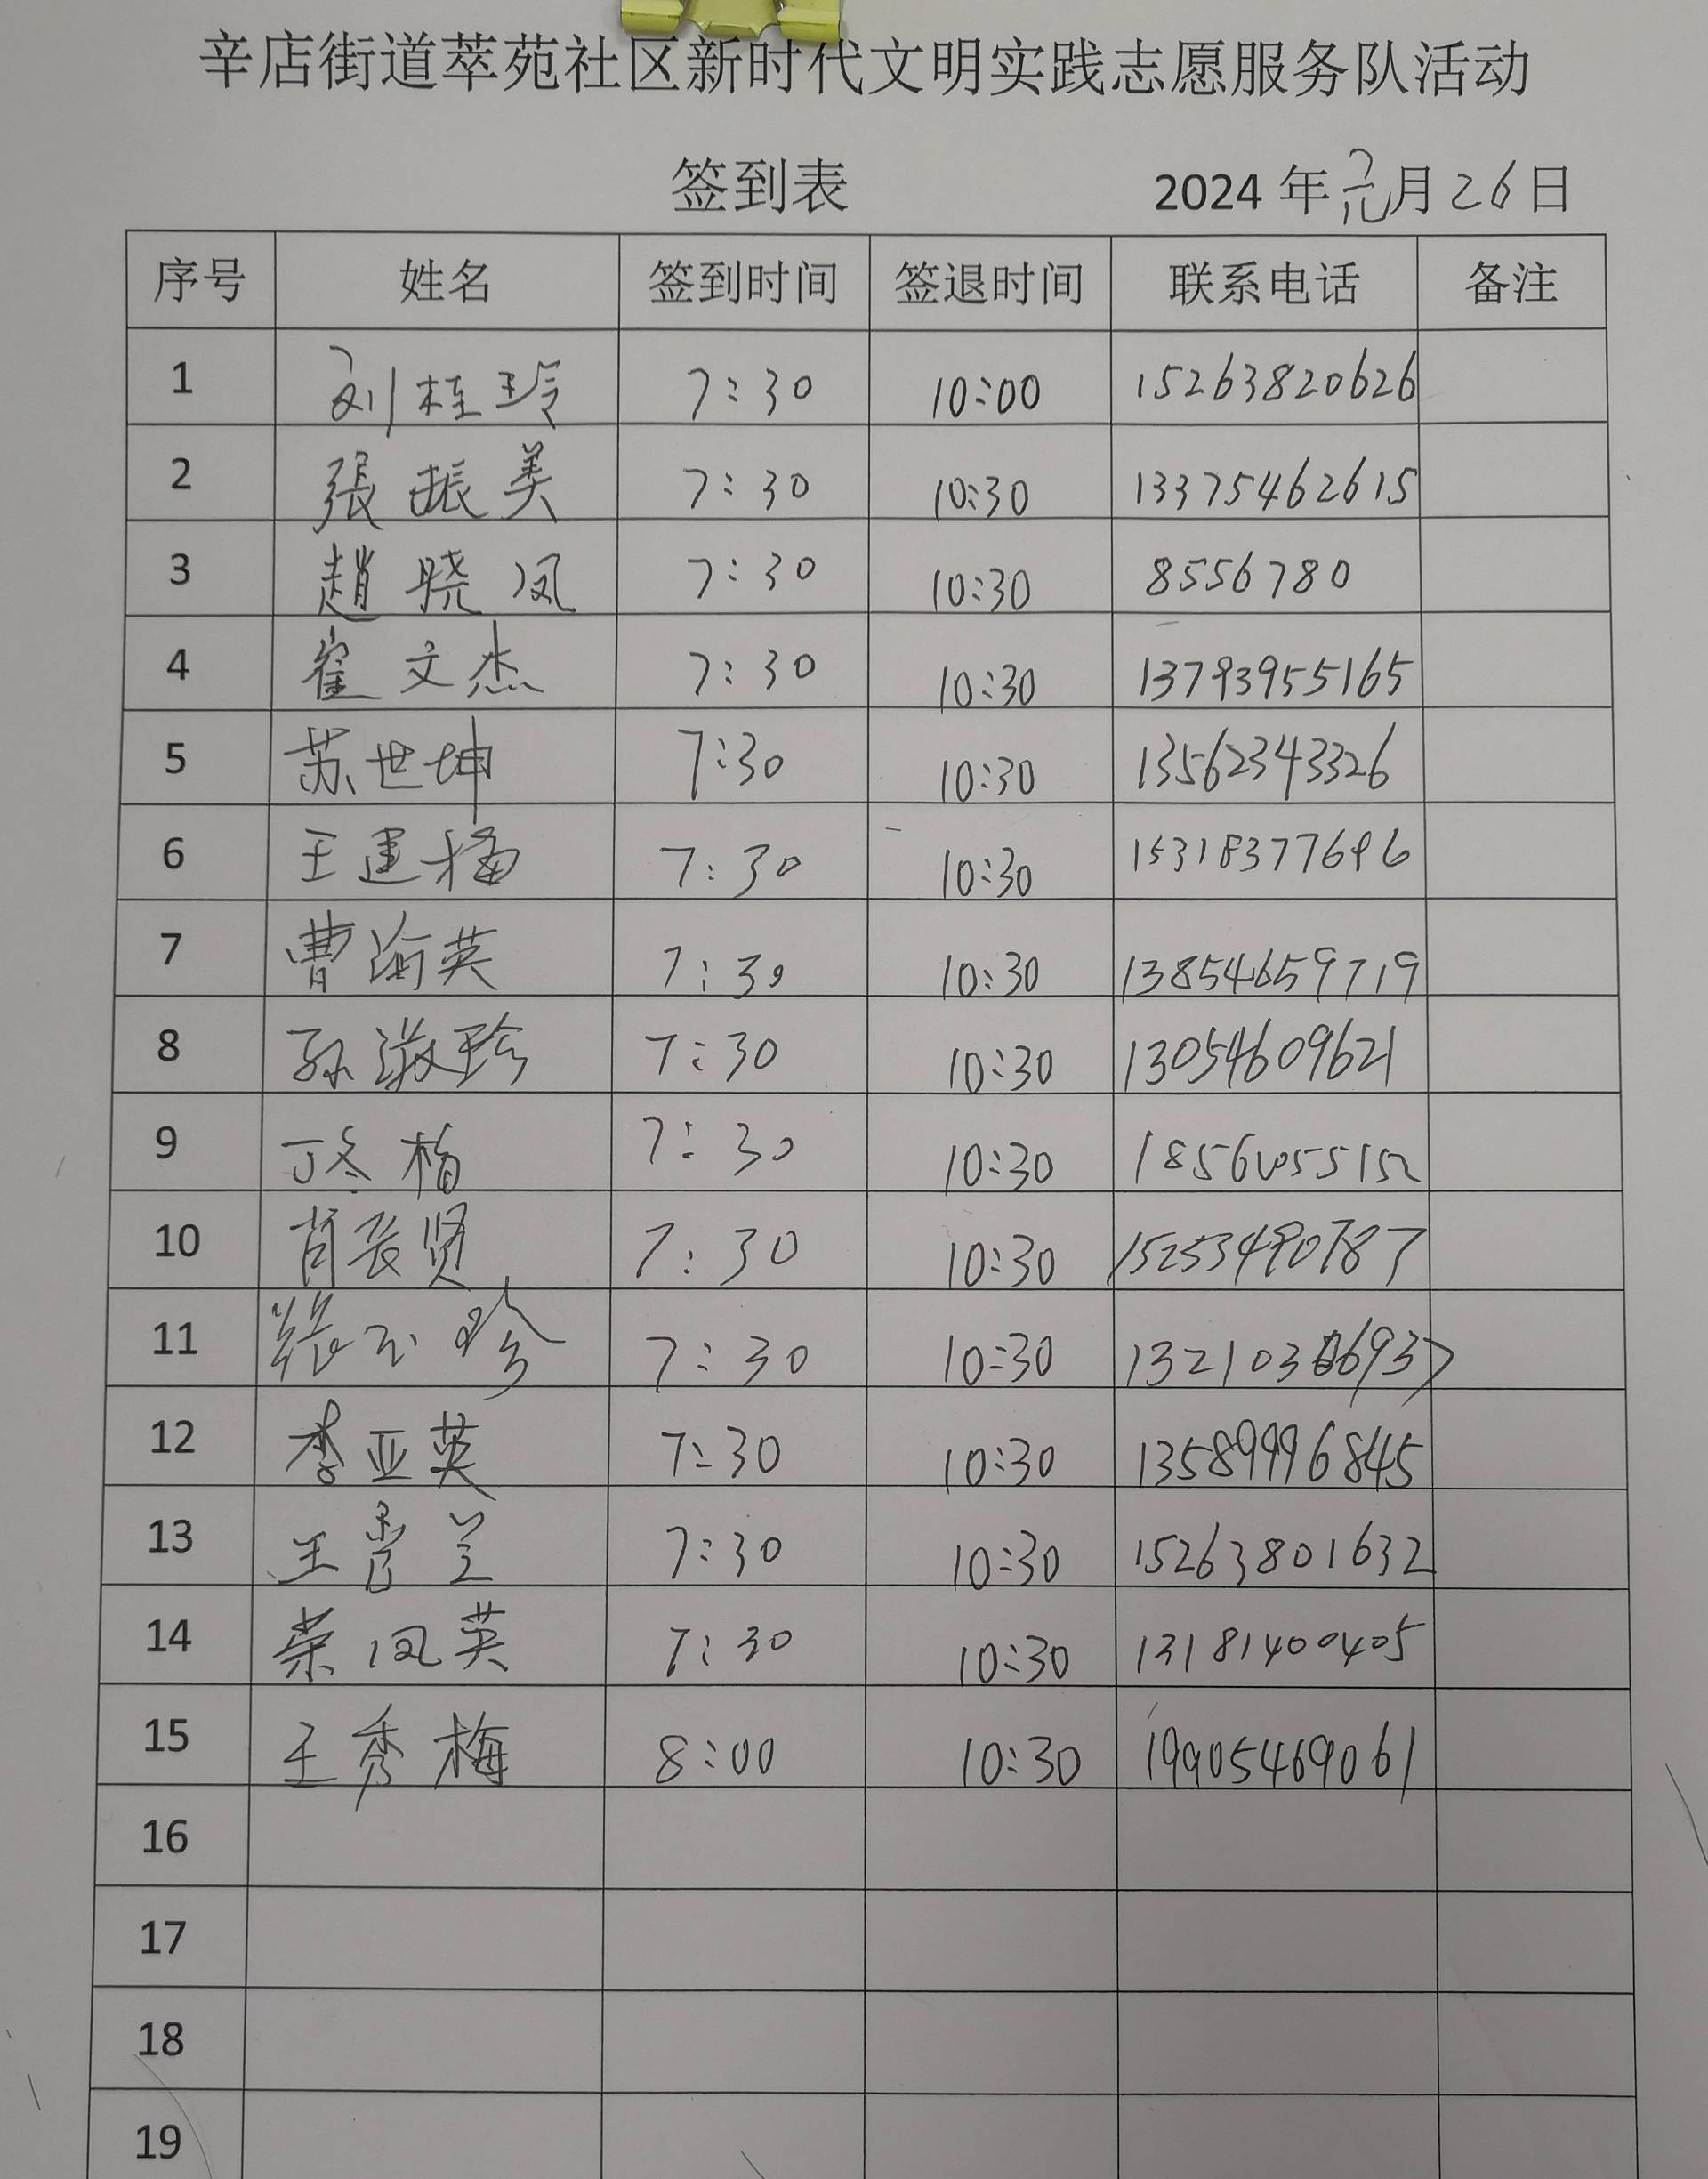 辛店街道萃苑社区新时代文明实践志愿服务队活动
签到表 2024年元月26日
序号 姓名 签到时间 签退时间 联系电话 备注
1 刘桂玲 7:30 10:00 15263820626
2 張振美 7:30 10:30 13375462615
3 趙晓凤 7:30 10:30 8556780
4 崔文杰 7:30 10:30 13793955165
5 苏世坤 7:30 10:30 13562343326
6 王建梅 7:30 10:30 15318377696
7 曹海英 7:30 10:30 13854659719
8 孙淑珍 7:30 10:30 13054609621
9 丁冬梅 7:30 10:30
10 肖长贤 7:30 10:30 15253490787
11 张玉珍 7:30 10:30
12 李亚英 7:30 10:30 13589996845
13 王香兰 7:30 10:30 15263801632
14 荣凤英 7:30 10:30 13181400405
15 王秀梅 8:00 10:30 19905469061
16
17
18
19